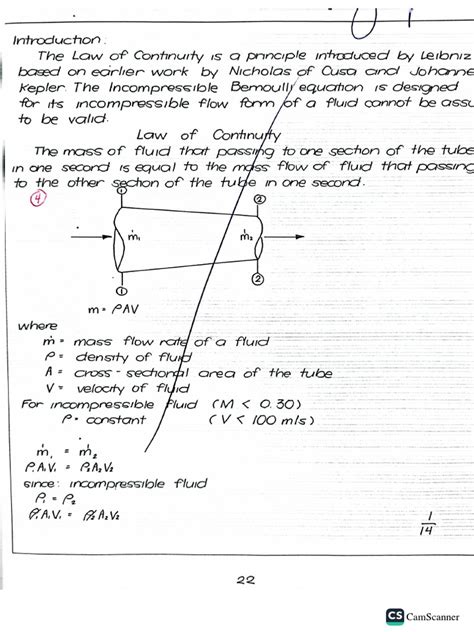 Introduction:
The Law of Continuity is a principle introduced by Leibniz
based on earlier work by Nicholas of Cusa and Johanne
Kepler. The Incompressible Bernoulli equation is designed
for its incompressible flow form of a fluid cannot be assu
to be valid.
Law of Continuity
The mass of fluid that passing to one section of the tube
in one second is equal to the mass flow of fluid that passing
to the other section of the tube in one second.
4
1 2
ṁ₁ ṁ₂
1 2
m = ρAV
where
ṁ = mass flow rate of a fluid
ρ = density of fluid
A = cross-sectional area of the tube
V = velocity of fluid
For incompressible fluid (M < 0.30)
ρ = constant (V < 100 m/s)
ṁ₁ = ṁ₂
ρ₁A₁V₁ = ρ₂A₂V₂
since: incompressible fluid
ρ₁ = ρ₂
ρ₁A₁V₁ = ρ₂A₂V₂
1/14
22
CS CamScanner